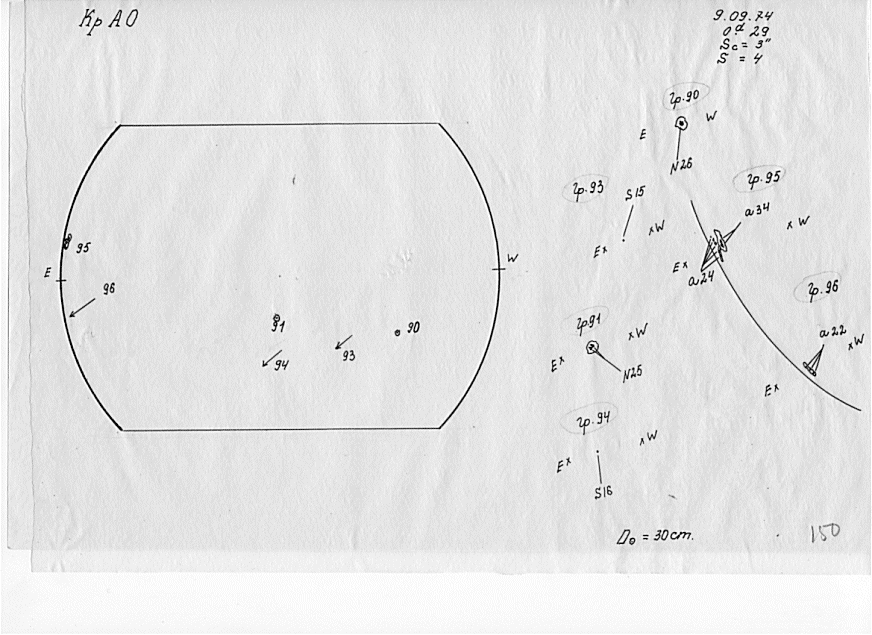 Кр АО
9.09.74
0.ᵈ29
Sc = 3"
S = 4
95
E
96
91
94
93
90
W
гр.90
E
W
N26
гр.93
S15
E x
x W
гр.95
a34
x W
E x
a24
гр.96
a22
x W
E x
гр.91
x W
E x
N25
гр.94
x W
E x
S16
D₀ = 30cm.
150